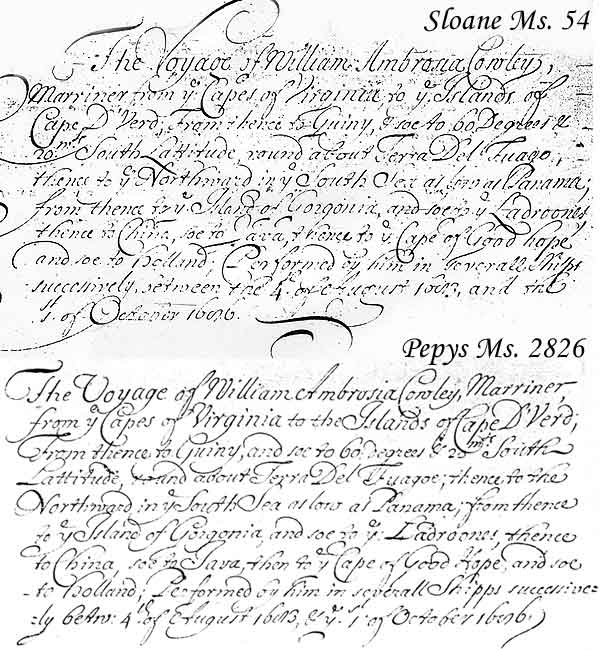 Sloane Ms. 54
The Voyage of William Ambrosia Cowley,
Marriner from yᵉ Capes of Virginia to yᵉ Islands of
Cape D'Verd, from thence to Guiny, & soe to 60 Degrees &
20 mᵗˢ South Lattitude, round about Terra Del Fuago,
thence to yᵉ Northward in yᵉ South Sea as low as Panama;
from thence to yᵉ Island of Gorgonia, and soe to yᵉ Ladroones
thence to China, soe to Java, thence to yᵉ Cape of Good hope
and soe to Holland. Performed by him in severall Ships
successively between the 4ᵗʰ of August 1683, and the
1ˢᵗ of October 1686.
Pepys Ms. 2826
The Voyage of William Ambrosia Cowley, Marriner,
from yᵉ Capes of Virginia to the Islands of Cape D'Verd;
From thence to Guiny, and soe to 60 degrees & 20 mᵗˢ South
Lattitude, round about Terra Del Fuagoe; thence to the
Northward in yᵉ South Sea as low as Panama; from thence
to yᵉ Island of Gorgonia, and soe to yᵉ Ladroones, thence
to China, soe to Java, then to yᵉ Cape of Good Hope, and soe
to Holland; Performed by him in severall Shipps successive=
=ly betw: 4ᵗʰ of August 1683, & yᵉ 1ˢᵗ of October 1686